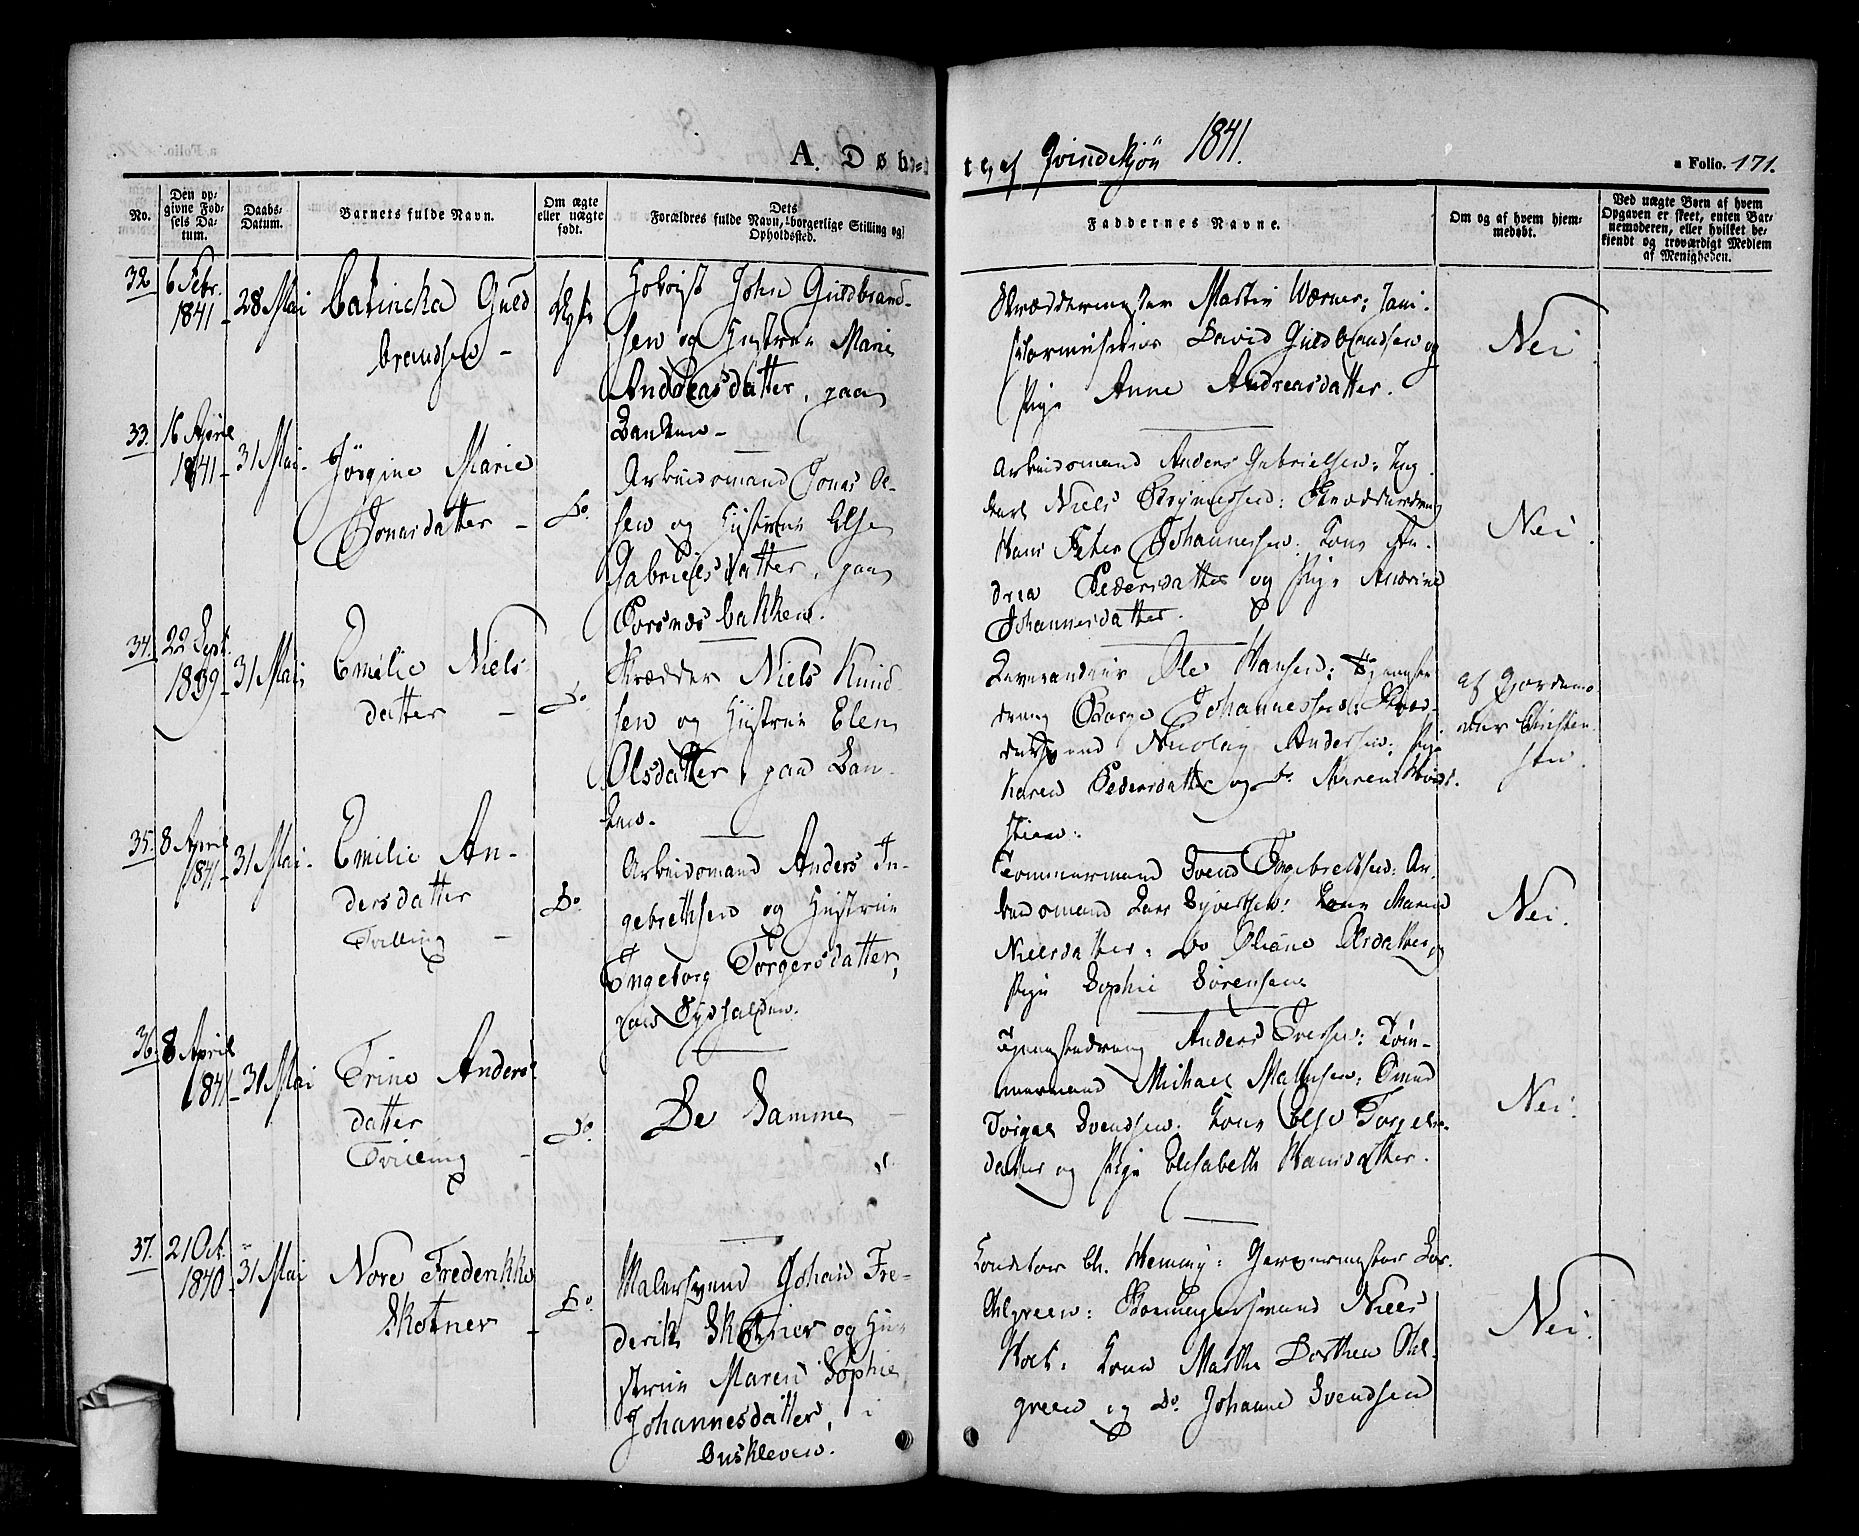 A. Døbte af Qvindekjön 1841.
a Folio. 171.
No.
Den opgivne Fødsels Datum.
Daabs-Datum.
Barnets fulde Navn.
Om ægte eller uægte født.
Dets Forældres fulde Navn, borgerlige Stilling og Opholdssted.
Faddernes Navne.
Om og af hvem hjemmedøbt.
Ved uægte Børn af hvem Opgaven er skeet, enten Barnemoderen, eller hvilket bekiendt og troværdigt Medlem af Menigheden.
32.
6 Febr.
1841
28 Mai
Catincka Guld
brandsen
Ægte
John Guldbrand-
sen og Hustrue Marie
Andreasdatter, paa
Banken
Skræddermester Martin Werner; Jani-
David Guldbrandsen og
Pige Anne Andreasdatter.
Nei
33.
16 April
1841
31 Mai
Jörgine Marie
Jonasdatter
Do
Arbeidsmand Jonas Ol-
sen og Hustrue Else
Gabrielsdatter, paa
Vorsnæs bakken.
Arbeidsmand Anders Gabrielsen; Ung-
karl Niels
Hans Peter Johannessen; Kone An-
drea Pedersdatter og Pige Andrine
Johannesdatter.
Nei
34.
22 Sept.
1839
31 Mai
Emilie Niels
datter
Do
Skrædder Niels Knud
sen og Hustrue Elen
Olsdatter, paa Ban-
ken.
Ole Hansen; Tjeneste
dreng Borge Johannessen; Skræd-
dersvend Nicolay Andersen; Pige
Karen Pedersdatter og Do Maren
stien.
af Jordemo-
der Christen-
sen.
35.
8 April
1841
31 Mai
Emilie An-
dersdatter
Tvilling
Do
Arbeidsmand Anders In-
gebrethsen og Hustrue
Ingeborg Torgersdatter,
ved Tydsalden.
Tommermand Svend Ingebretsen; Ar-
beidsmand Lars Syvertsen; Kone Maren
Nielsdatter; Do Oliane Olsdatter, og
Pige Sophie Sörensen
Nei.
36.
8 April
1841
31 Mai
Trine Anders
datter
Tvilling
Do
De Samme
Tjenestedreng Anders Iversen; Töm-
mermand Michael
Torger Svendsen; Kone Else Torgers-
datter og Pige Elisabeth Hansdatter.
Nei.
37.
21 Oct.
1840
31 Mai
Nore Frederikke
Skotner
Do
Malersvend Johan Fre-
derik Skotner og Hu-
strue Maren Sophie
Johannesdatter, i
Buskleven.
Konditor Ch. Henning; Garvermester Lar.
Ohlgreen; Niels
Holt; Kone Marthe Dorthea Ohl-
green og Do Johanne Svendsen
Nei.